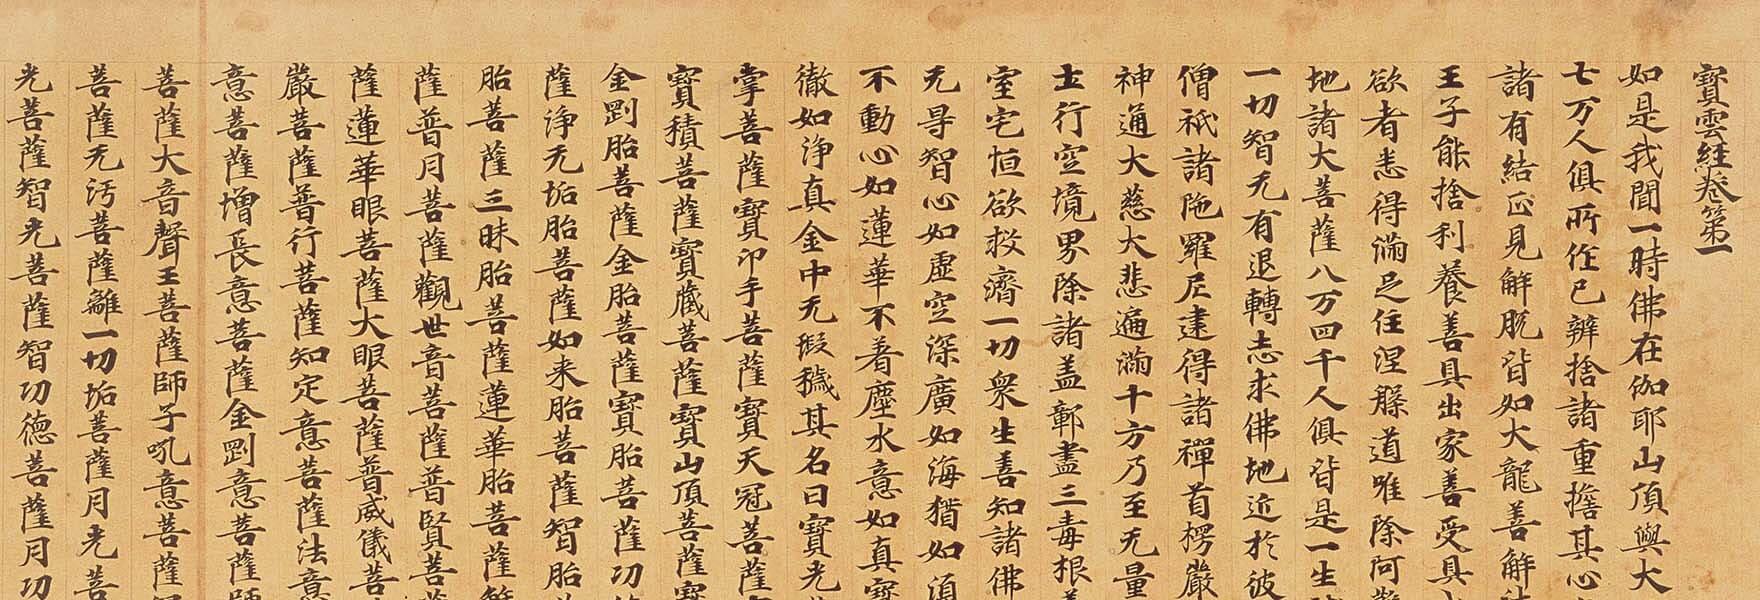 寶雲経卷第一
如是我聞一時佛在伽耶山頂與大
七万人俱所作已辨捨諸重擔其心
諸有結正見解脫皆如大龍善解
王子能捨利養善具出家善受具
欲者悉得滿足住涅槃道唯除阿
地諸大菩薩八万四千人俱皆是一生
一切智无有退轉志求佛地近於彼
僧祇諸陁羅尼逮得諸禪首楞嚴
神通大慈大悲遍滿十方乃至无量
土行空境界除諸盖鄣盡三毒根
室宅恒欲救濟一切衆生善知諸佛
无㝵智心如虛空深廣如海猶如湏
不動心如蓮華不着塵水意如真寶
徹如浄真金中无瑕穢其名曰寶光
掌菩薩寶印手菩薩寶天冠菩薩
寶積菩薩寶藏菩薩寶山頂菩薩寶
金剛胎菩薩金胎菩薩寶胎菩薩功
薩浄无垢胎菩薩如来胎菩薩智胎
胎菩薩三昧胎菩薩蓮華胎菩薩解
薩普月菩薩觀世音菩薩普賢菩
薩蓮華眼菩薩大眼菩薩普威儀菩
嚴菩薩普行菩薩知定意菩薩法意
意菩薩增長意菩薩金剛意菩薩師
菩薩大音聲王菩薩師子吼意菩薩
菩薩无汚菩薩離一切垢菩薩月光菩
光菩薩智光菩薩智功德菩薩月功